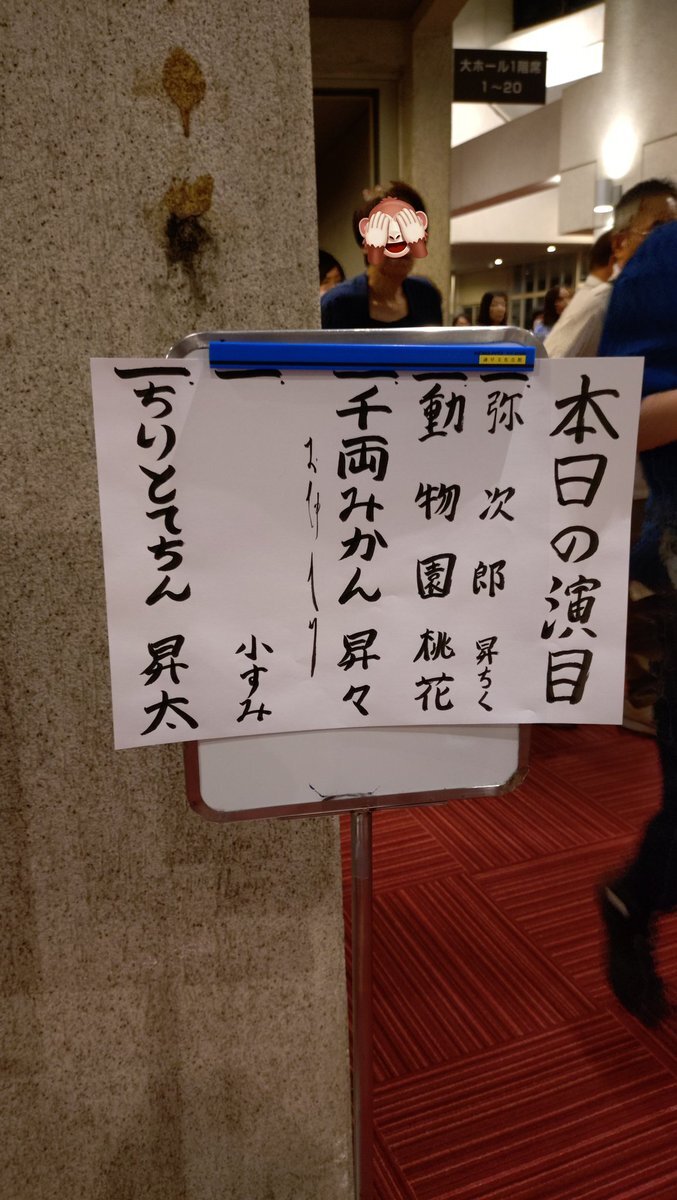 大ホール1階席
1〜20
本日の演目
一、弥次郎 昇ちく
一、動物園 桃花
一、千両みかん 昇々
おなかいり
一、 小すみ
一、ちりとてちん 昇太